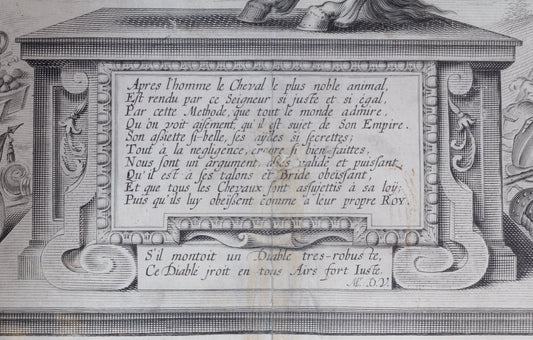 Apres l'homme le Cheval le plus noble animal,
Est rendu par ce Seigneur si juste et si égal,
Par cette Methode, que tout le monde admire,
Qu'on voit aisement, qu'il est sujet de Son Empire.
Son assiette si-belle, ses aides si secrettes;
Tout à la negligence, si bien faites,
Nous sont un argument, assés valide et puissant,
Qu'il est à ses talons et Bride obeissant,
Et que tous les Chevaux sont assujettis à sa loy;
Puis qu'ils luy obeissent comme a leur propre ROY.
S'il montoit un Diable tres-robuste,
Ce Diable jroit en tous Airs fort Iuste.
Mr. D.V.